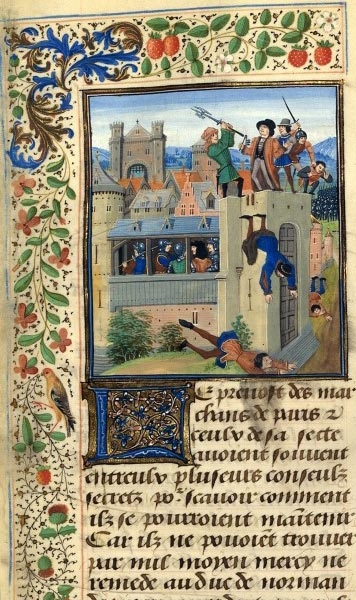 Le prevost des mar
chans de paris &
ceulx de sa secte
avoient souvent
entreeulx pluseurs conseulz
secretz po᷑ scavoir comment
ilz se pourroient maintenir
Car ilz ne povoient trouver
par nul moyen mercy ne
remede au duc de norman